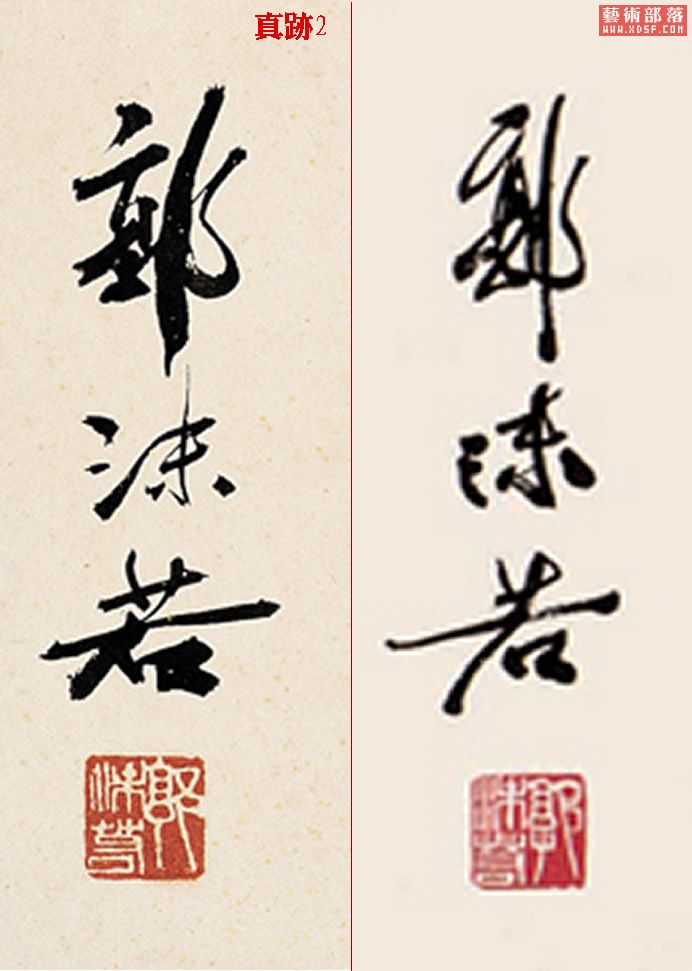 真跡2
藝術部落
WWW.XDSF.COM
郭沫若
郭沫若
郭沫若
郭沫若